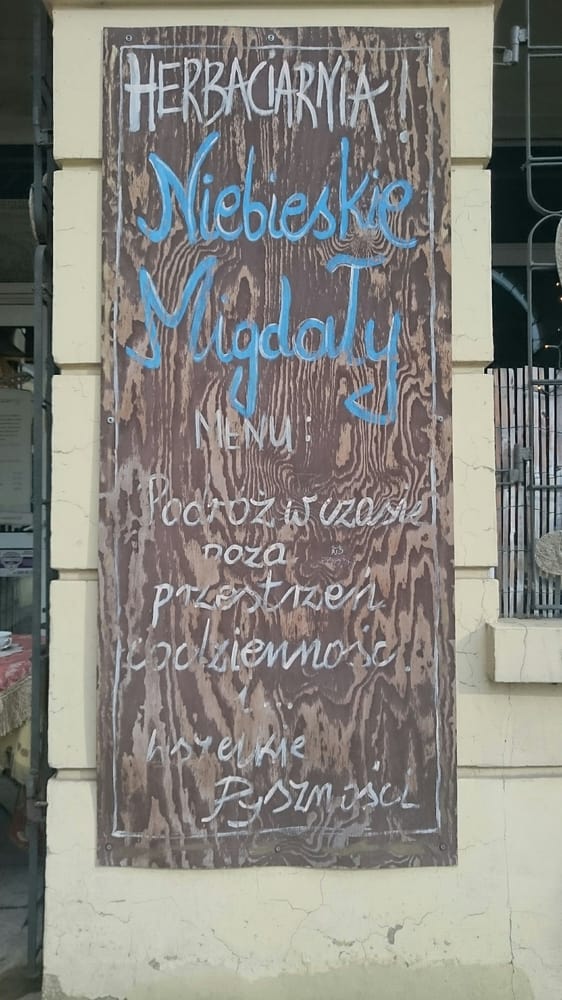 HERBACIARNIA!
Niebieskie
Migdały
MENU:
Podróż w czasie
poza
przestrzeń
codzienność
i...
wszelkie
Pyszności